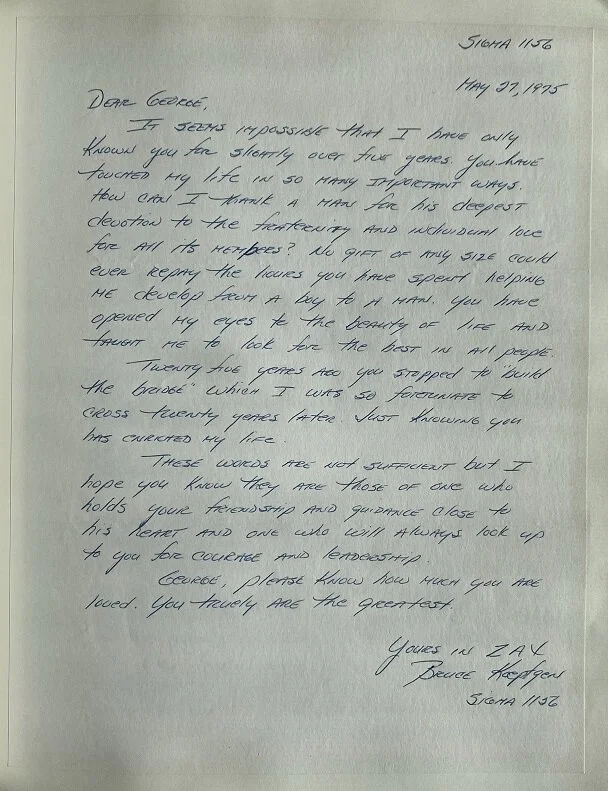 SIGMA 1156
MAY 27, 1975
DEAR GEORGE,
IT SEEMS IMPOSSIBLE that I HAVE ONLY
KNOWN YOU FOR SLIGHTLY OVER FIVE YEARS. YOU HAVE
TOUCHED MY LIFE IN SO MANY IMPORTANT WAYS.
HOW CAN I THANK A MAN FOR HIS DEEPEST
DEVOTION TO THE FRATERNITY AND INDIVIDUAL LOVE
FOR ALL ITS MEMBERS? NO GIFT OF ANY SIZE COULD
EVER REPAY THE HOURS YOU HAVE SPENT HELPING
ME DEVELOP FROM A BOY TO A MAN. YOU HAVE
OPENED MY EYES TO THE BEAUTY OF LIFE AND
TAUGHT ME TO LOOK FOR THE BEST IN ALL PEOPLE.
TWENTY FIVE YEARS AGO YOU STOPPED TO "BUILD
THE BRIDGE" WHICH I WAS SO FORTUNATE TO
CROSS TWENTY YEARS LATER. JUST KNOWING YOU
HAS ENRICHED MY LIFE.
THESE WORDS ARE NOT SUFFICIENT BUT I
HOPE YOU KNOW THEY ARE THOSE OF ONE WHO
HOLDS YOUR FRIENDSHIP AND GUIDANCE CLOSE TO
HIS HEART AND ONE WHO WILL ALWAYS LOOK UP
TO YOU FOR COURAGE AND LEADERSHIP.
GEORGE, PLEASE KNOW HOW MUCH YOU ARE
LOVED. YOU TRUELY ARE THE GREATEST.
YOURS IN ZAX
BRUCE
SIGMA 1156